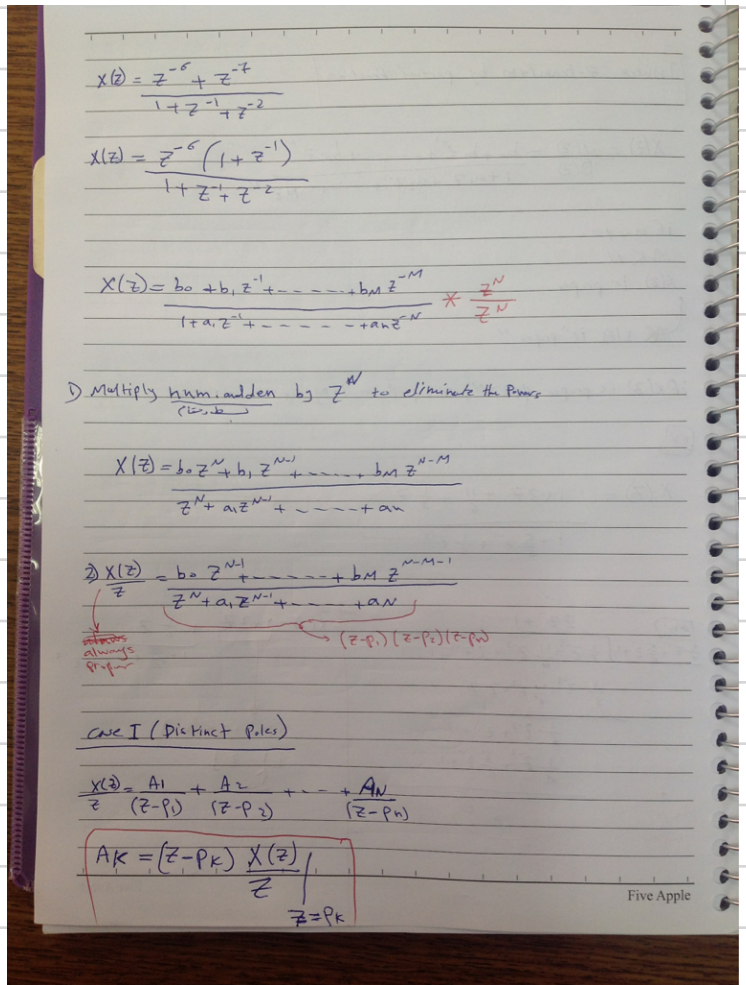 X(z) = z^-6 + z^-7 / 1 + z^-1 + z^-2
X(z) = z^-6 (1 + z^-1) / 1 + z^-1 + z^-2
X(z) = b0 + b1 z^-1 + ------ + bM z^-M / 1 + a1 z^-1 + - - - - - + an z^-N * z^N / z^N
1) Multiply num. and den by z^N to eliminate the Powers
X(z) = b0 z^N + b1 z^N-1 + ------ + bM z^N-M / z^N + a1 z^N-1 + - - - - + an
2) X(z)/z = b0 z^N-1 + ------- + bM z^N-M-1 / z^N + a1 z^N-1 + ------ + aN
always
proper
(z-p1) (z-p2) (z-pn)
case I (Distinct Poles)
X(z)/z = A1/(z-p1) + A2/(z-p2) + - - - + AN/(z-pn)
AK = (z-pK) X(z)/z | z=pK
Five Apple